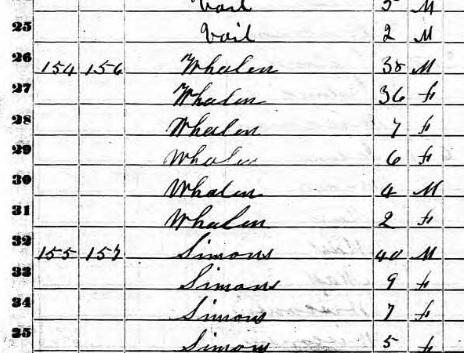 Vail 5 M
25 Vail 2 M
26 154 156 Whalen 38 M
27 Whalen 36 f
28 Whalen 7 f
29 Whalen 6 f
30 Whalen 4 M
31 Whalen 2 f
32 155 157 Simons 40 M
33 Simons 9 f
34 Simons 7 f
35 Simons 5 f